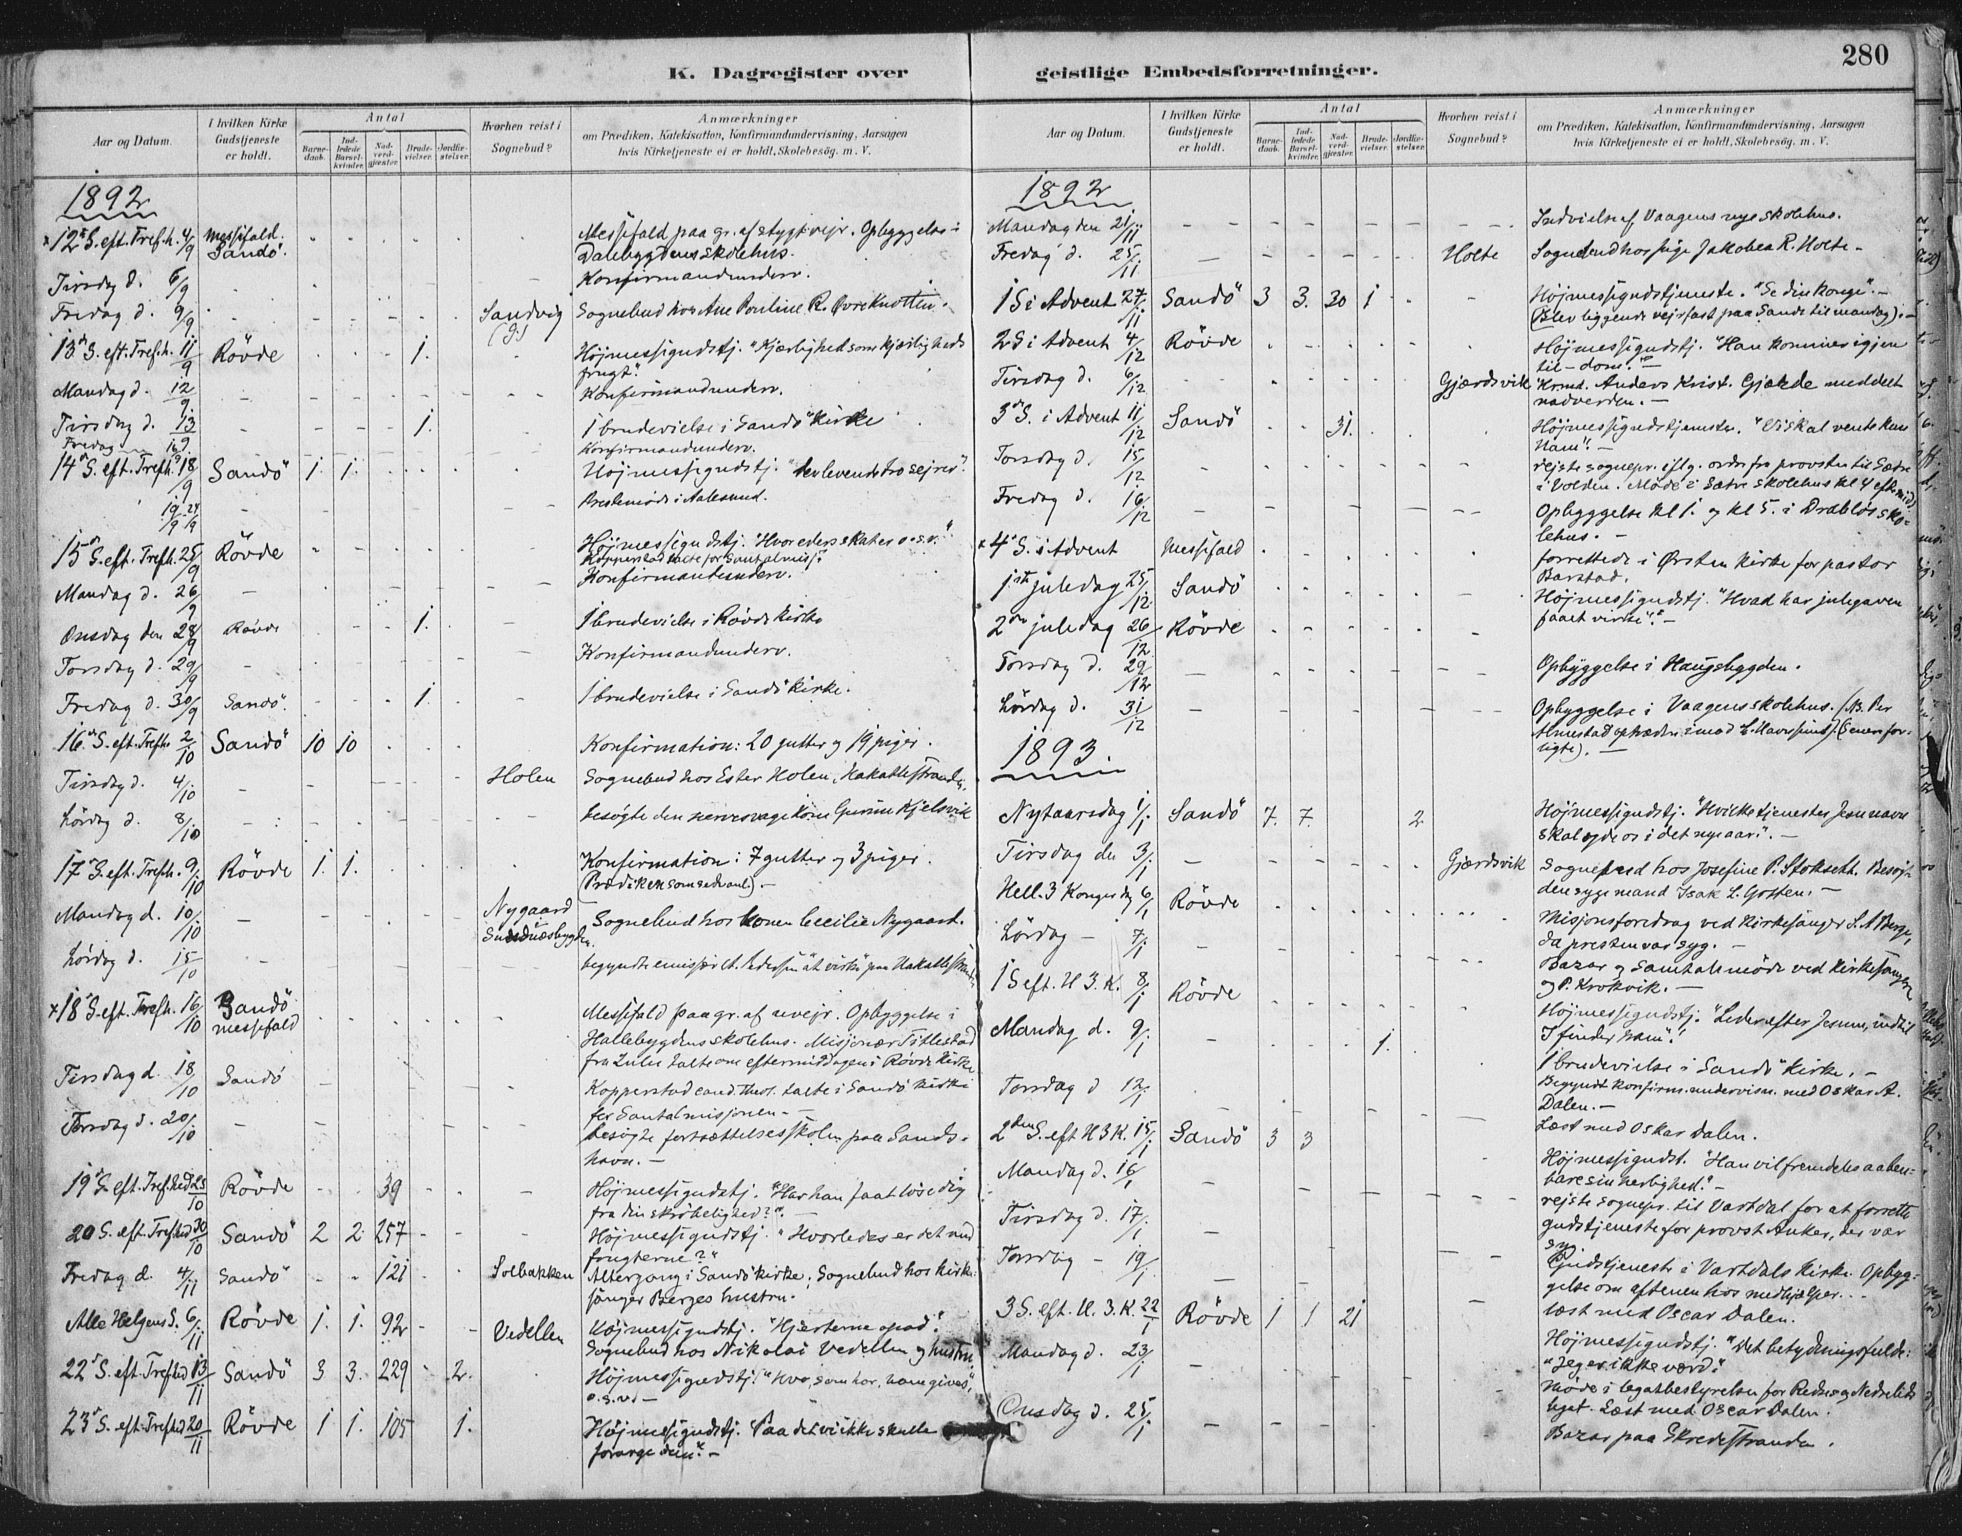 K. Dagregister over
geistlige Embedsforretninger.
280
Aar og Datum.
I hvilken Kirke
Gudstjeneste
er holdt.
Antal
Barne-
daab.
Ind-
ledede
Barsel-
kvinder.
Nad-
verd-
gjester.
Brude-
vielser.
Jordfæ-
stelser.
Hvorhen reist i
Sognebud?
Anmærkninger
om Prædiken, Katekisation, Konfirmandundervisning, Aarsagen
hvis Kirketjeneste ei er holdt, Skolebesøg. m. V.
1892
12te S. eft. Trefh. 4/9 Messefald. Sandö. Messefald paa gr. af stygt vejr. Opbyggelse i
Dalebygdens skolehus.
Tirsdag d. 6/9 Konfirmandunderv.
Fredag d. 9/9 Sandvig Sognebud hos Ane Pouline R.
13de S. eft. Trefh. 11/9 Røvde 1. Højmessegudstj. "Kjærlighed som kjærligheds
frugt".
Mandag d. 12/9 Konfirmandunderv.
Tirsdag d. 13 1. 1 brudevielse i Sandö kirke
Fredag 16/9 Konfirmandunderv.
14de S. eft. Trefh. 18/9 Sandö 1. 1. Højmessegudstj. "Den levende tro sejrer".
19/9 24/9 Prestemøde i Aalesund.
15de S. eft. Trefh. 25/9 Røvde Højmessegudstj. "Hvor eders skat er o.s.v."
Kopperstad talte for Santalmisj.
Mandag d. 26/9 Konfirmandunderv.
Onsdag den 28/9 Røvde 1. 1 brudevielse i Røvde kirke
Torsdag d. 29/9 Konfirmandunderv.
Fredag d. 30/9 Sandö. 1. 1 brudevielse i Sandö kirke.
16de S. eft. Trefh. 2/10 Sandö 10 10 Konfirmation: 20 gutter og 19 piger.
Tirsdag d. 4/10 Holen Sognebud hos Ester Holen, Hakallestranden.
Lördag d. 8/10 besøgte den nervesvage kone Gurine Kjelsvik
17de S. eft. Trefh. 9/10 Røvde 1. 1. Konfirmation: 7 gutter og 3 piger.
(Prædiken som sedvanl.) -
Mandag d. 10/10 Nygaard Sognebud hos konen Cecilie Nygaard.
Lördag d. 15/10 begyndte emissær Pedersen at virke paa Hakallestranden
18de S. eft. Trefh. 16/10 Sandö messefald Messefald paa gr. af uvejr. Opbyggelse i
Hallebygdens skolehus. Misjonær Titlestad
fra Zulu talte om eftermiddagen i Røvde kirke
Tirsdag d. 18/10 Sandö Kopperstad cand. theol. talte i Sandö kirke
for Santalmisjonen. -
Torsdag d. 20/10 besøgte fortsættelsesskolen paa Sands-
havn. -
19de S. eft. Trefhed 23/10 Røvde 39 Højmessegudstj. "Har han faat løse dig
fra din skrøbelighed?". -
20 S. eft. Trefhed 30/10 Sandö 2 2 257 Højmessegudstj. "Hvorledes er det med
frugterne?"
Fredag d. 4/11 Sandö 121 Solbakken Altergang i Sandö kirke; Sognebud hos kirke-
sanger Berges hustru.
Alle Helgens S. 6/11 Røvde 1. 1. 92 Vedellen Højmessegudstj. "Hjerterne opad".
Sognebud hos Nikolai Vedellen og hustru
22de S. eft. Trefhed 13/11 Sandö 3 3. 229 2. Højmessegudstj. "Hvo, som har, ham gives",
o.s.v. -
23de S. eft. Trefhed 20/11 Røvde 1 1. 105 1. Højmessegudstj. "Paa det vi ikke skulle
forarge dem". -
Aar og Datum.
I hvilken Kirke
Gudstjeneste
er holdt.
Antal
Barne-
daab.
Ind-
ledede
Barsel-
kvinder.
Nad-
verd-
gjester.
Brude-
vielser.
Jordfæ-
stelser.
Hvorhen reist i
Sognebud?
Anmærkninger
om Prædiken, Katekisation, Konfirmandundervisning, Aarsagen
hvis Kirketjeneste ei er holdt, Skolebesøg. m. V.
1892
Mandag den 21/11 Indvielse af Vaagens nye skolehus.
Fredag d. 25/11 Holte Sognebud hos syge Jakobea R. Holte -
1 S. i Advent 27/11 Sandö 3 3. 20 1 Højmessegudstjeneste. "Se din konge". -
(Blev liggende vejrfast paa Sande til mandag). -
2 S. i Advent 4/12 Røvde Højmessegudstj. "Han kommer igjen
til - dom". -
Tirsdag d. 6/12 Gjærdsvik Krmd. Anders Krist. Gjærde meddelt
nadverden. -
3de S. i Advent 11/12 Sandö 31. Højmessegudstjeneste. "Vi skal vente kun
Ham". -
Torsdag d. 15/12 rejste sognepr. iflg. ordre fra provsten til Sætre
i Volden. Møde i Sætre skolehus kl 4 eftmid.
Fredag d. 16/12 Opbyggelse kl 1. og kl 5. i Drabløs sko-
lehus. -
4de S. i Advent Messefald forrettede i Ørsten kirke for pastor
Barstad.
1ste juledag 25/12 Sandö Højmessegudstj. "Hvad har julegaven
faaet virke". -
2den juledag 26/12 Røvde
Torsdag d. 29/12 Opbyggelse i Haugsbygden.
Lördag d. 31/12 Opbyggelse i Vaagens skolehus. (NB. Per
Almestad
1893.
Nytaarsdag 1/1 Sandö 7. 7. 2 Højmessegudstj. "Hvilke tjenester Jesu navn
skal yde os i det nye aar". -
Tirsdag den 3/1 Gjærdsvik Sognebud hos Josefine P. Stokseth. Besøgt
den syge mand Isak L. Gjøsten. -
Hell. 3 Kongers dag 6/1 Røvde Misjonsforedrag ved kirkesanger S. A. Berge,
da presten var syg. -
Lördag - 7/1 Bazar og Samtalemøde ved kirkesangeren
og P. Krokvik. -
1 S. eft. H. 3. K. 8/1 Røvde Højmessegudstj. "Leder efter Jesum, indtil
I finder ham".
Mandag d. 9/1 1. 1 brudevielse i Sandö kirke. -
Torsdag d 12/1 Begyndt konfirm.undervisn. med Oskar A.
Dalen. -
Læst med Oskar Dalen.
2den S. eft H 3 K. 15/1 Sandö 3 3 Højmessegudst. "Han vil fremdeles aaben-
bare sin herlighed". -
Mandag d. 16/1 rejste sognepr. til Vartdal for at forrette
gudstjeneste for provst Anker, der var
syg
Tirsdag d. 17/1 Gudstjeneste i Vartdals kirke. Opbyg-
gelse om aftenen hos medhjælper.
Torsdag - 19/1 læst med Oscar Dalen.
3 S. eft. H. 3. K. 22/1 Røvde 1 1 21 Højmessegudstj. "Det betydningsfulde:
"Jeg er ikke værd".
Mandag d. 23/1 Møde i legatbestyrelsen for
legat. Læst med Oscar Dalen.
Onsdag d. 25/1 Bazar paa Skredestranda.